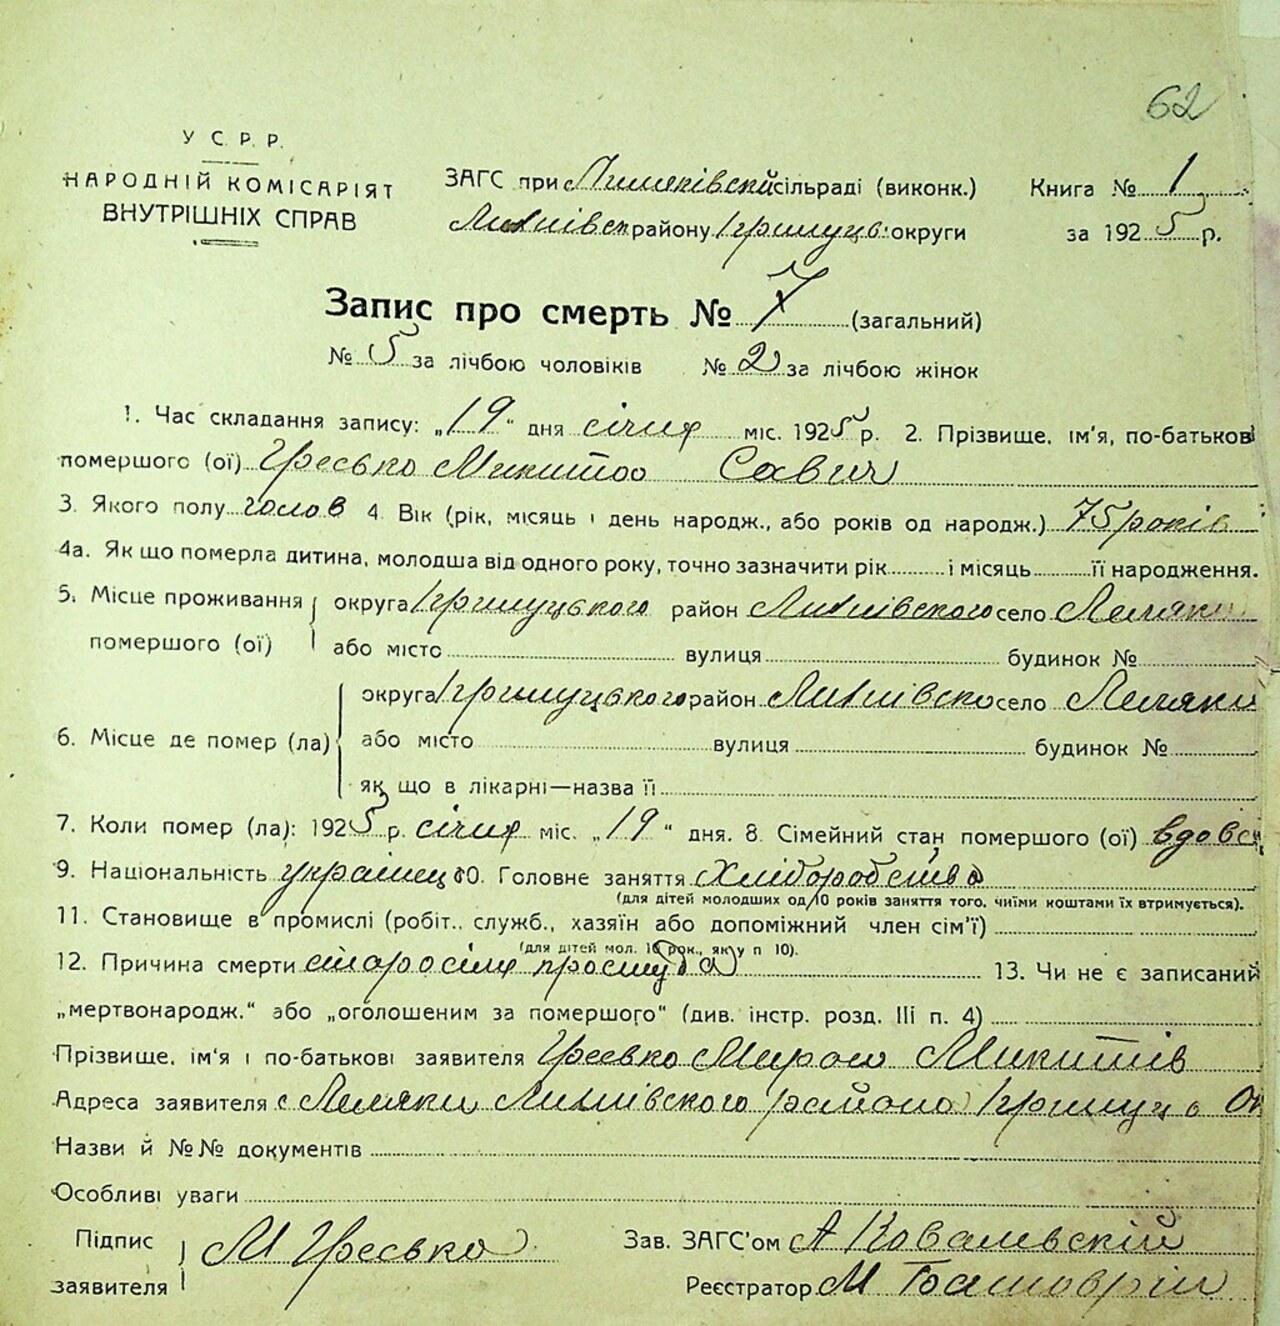 62
У С. Р. Р.
НАРОДНІЙ КОМІСАРІЯТ
ВНУТРІШНІХ СПРАВ
ЗАГС при сільраді (виконк.) Книга № 1
району округи за 1925 р.
Запис про смерть № 7 (загальний)
№ 5 за лічбою чоловіків № 2 за лічбою жінок
1. Час складання запису: „19“ дня січня міс. 1925 р. 2. Прізвище, ім'я, по-батькові
помершого (ої) Микита Савич
3. Якого полу чолов 4. Вік (рік, місяць і день народж., або років од народж.) 75 років
4а. Як що померла дитина, молодша від одного року, точно зазначити рік і місяць її народження.
5. Місце проживання помершого (ої) округа район село Леляки
або місто вулиця будинок №
6. Місце де помер (ла) округа район село Леляки
або місто вулиця будинок №
як що в лікарні—назва її
7. Коли помер (ла): 1925 р. січня міс. „19“ дня. 8. Сімейний стан помершого (ої)
9. Національність українец 10. Головне заняття Хліборобство
(для дітей молодших од 10 років заняття того, чиїми коштами їх втримується).
11. Становище в промислі (робіт., служб., хазяїн або допоміжний член сім'ї)
(для дітей мол. 10 рок., як у п 10).
12. Причина смерти простуда 13. Чи не є записаний
„мертвонародж.“ або „оголошеним за помершого“ (див. інстр. розд. III п. 4)
Прізвище, ім'я і по-батькові заявителя Микитів
Адреса заявителя с Леляки района
Назви й №№ документів
Особливі уваги
Підпис заявителя М Зав. ЗАГС'ом А Ковалевскій
Реєстратор М